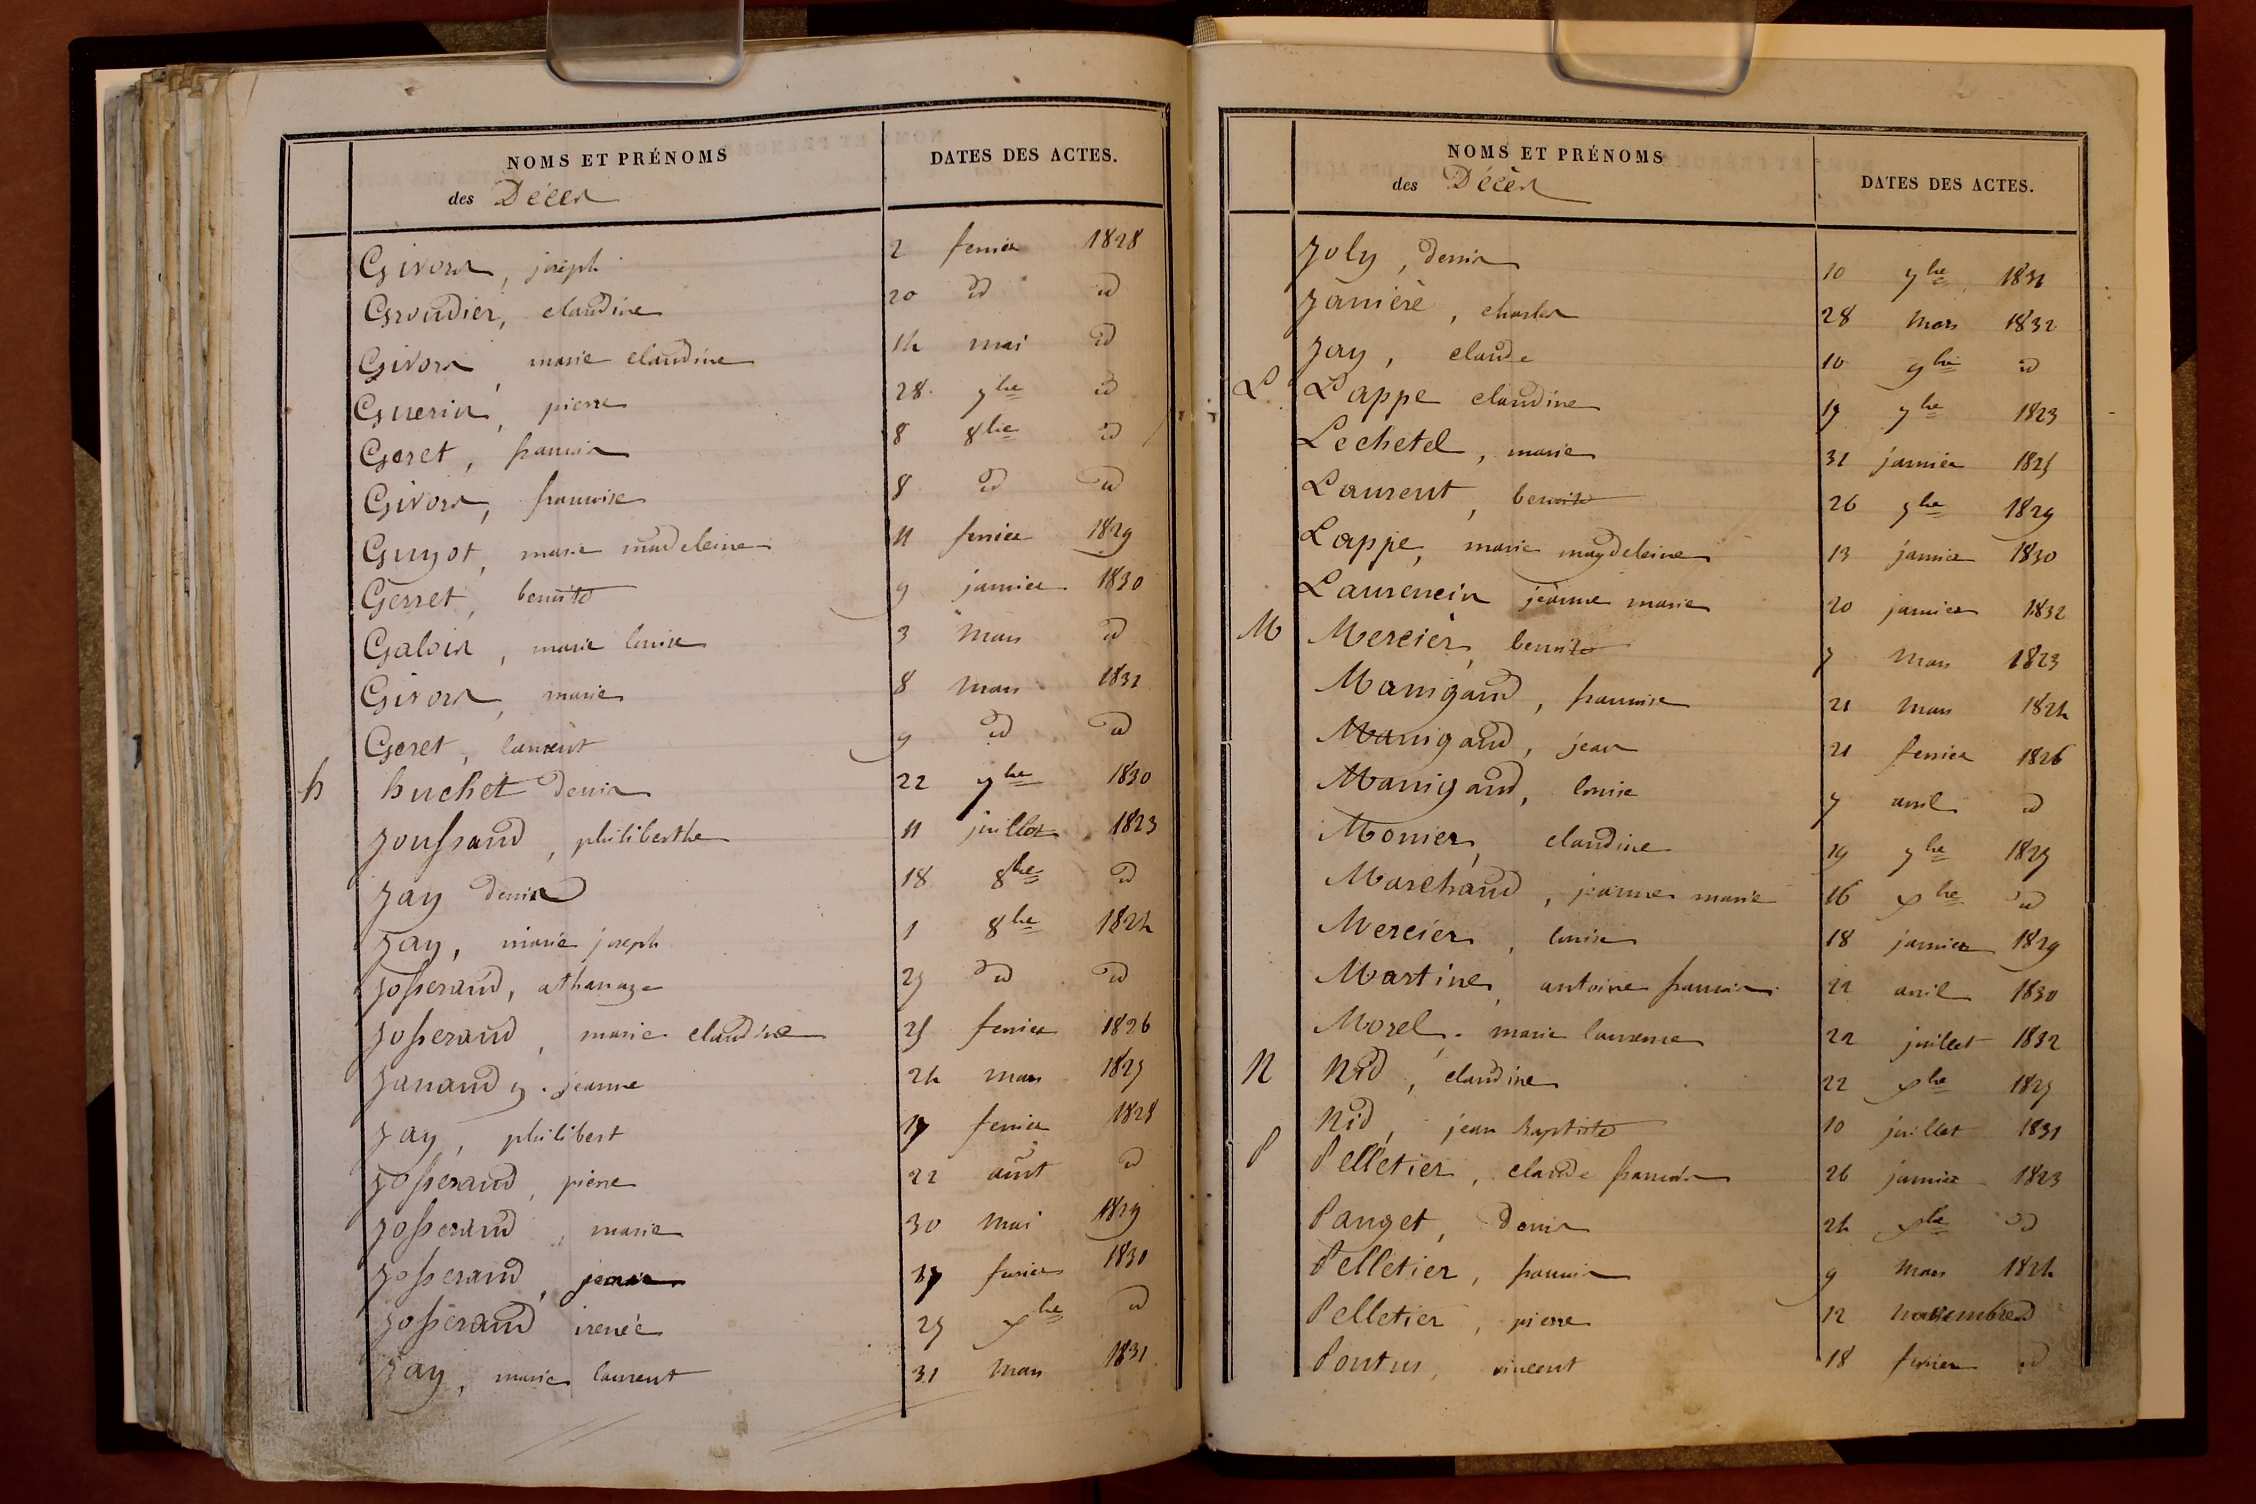 NOMS ET PRÉNOMS DATES DES ACTES.
des Décès
Givors, joseph 2 fevrier 1828
Groudier, claudine 20 id id
Givors, marie claudine 14 mai id
Guerin, pierre 28 7bre id
Goret, francois 8 8bre id
Givors, francoise 8 id id
Guyot, marie madeleine 11 fevrier 1829
Gerret, benoite 9 janvier 1830
Galois, marie louise 3 mars id
Givors, marie 8 mars 1831
Goret, laurent 9 id id
h huchet denis 22 9bre 1830
Joussaud, philiberthe 11 juillet 1823
Jay denis 18 8bre id
Jay, marie joseph 1 8bre 1824
Josserand, athanaze 27 id id
Josserand, marie claudine 25 fevrier 1826
Janaudy jeanne 24 mars 1827
Jay, philibert 17 fevrier 1828
Josserand, pierre 22 aout id
Josserand, marie 30 mai 1829
Josserand, 17 fevrier 1830
Josserand irenée 27 xbre id
Jay, marie laurent 31 mars 1831
NOMS ET PRÉNOMS DATES DES ACTES.
des Décès
Joly, denis 10 7bre 1831
Janiere, charles 28 mars 1832
Jay, claude 10 9bre id
L Lappe claudine 17 7bre 1823
Lechetel, marie 31 janvier 1825
Laurent, benoite 26 7bre 1829
Lappe, marie magdeleine 13 janvier 1830
Laurencin jeanne marie 20 janvier 1832
M Mercier, benoite 7 mars 1823
Manigaud, francoise 21 mars 1824
Manigaud, jean 21 fevrier 1826
Manigaud, louise 7 avril id
Monier, claudine 19 7bre 1827
Marchand, jeanne marie 16 xbre id
Mercier, louise 18 janvier 1829
Martine, antoine francois 22 avril 1830
Morel, marie laurence 22 juillet 1832
N Nid, claudine 22 xbre 1827
Nid, jean baptiste 10 juillet 1831
P Pelletier, claude francois 26 janvier 1823
Panget, denis 24 xbre id
Pelletier, francois 9 mars 1824
Pelletier, pierre 12 novembre id
Pontus, vincent 18 fevrier id